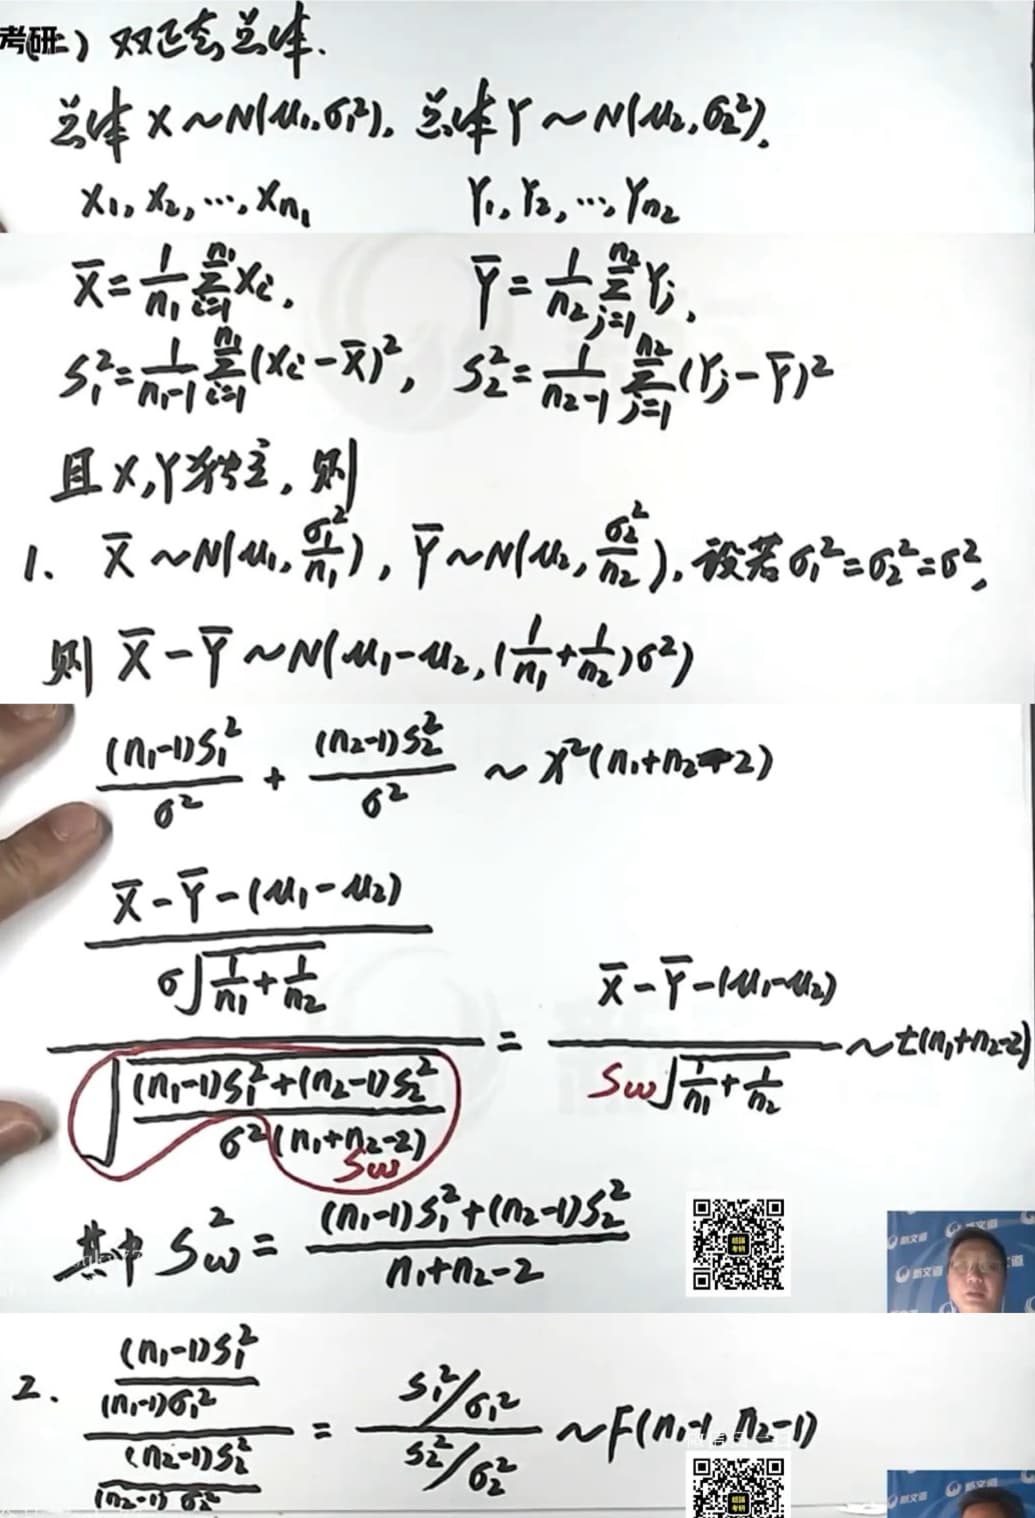 考研二）双正态总体.
总体 X ~ N(μ₁, σ₁²), 总体 Y ~ N(μ₂, σ₂²).
X₁, X₂, ⋯, Xn₁  Y₁, Y₂, ⋯, Yn₂
X̄ = 1/n₁ Σ_{i=1}^{n₁} Xi ,  Ȳ = 1/n₂ Σ_{j=1}^{n₂} Yj ,
S₁² = 1/(n₁-1) Σ_{i=1}^{n₁} (Xi - X̄)² , S₂² = 1/(n₂-1) Σ_{j=1}^{n₂} (Yj - Ȳ)²
且 X,Y 独立, 则
1、 X̄ ~ N(μ₁, σ₁²/n₁) , Ȳ ~ N(μ₂, σ₂²/n₂) , 设若 σ₁² = σ₂² = σ²,
则 X̄ - Ȳ ~ N(μ₁ - μ₂, (1/n₁ + 1/n₂)σ²)
(n₁-1)S₁²/σ² + (n₂-1)S₂²/σ² ~ χ²(n₁+n₂-2)
[(X̄ - Ȳ - (μ₁ - μ₂)) / (σ√(1/n₁ + 1/n₂))] / √[((n₁-1)S₁² + (n₂-1)S₂²) / (σ²(n₁+n₂-2))] = (X̄ - Ȳ - (μ₁ - μ₂)) / (Sω√(1/n₁ + 1/n₂)) ~ t(n₁+n₂-2)
Sω
其中 Sω² = ((n₁-1)S₁² + (n₂-1)S₂²) / (n₁+n₂-2)
新文道
新文道
2. [(n₁-1)S₁² / (n₁-1)σ₁²] / [(n₂-1)S₂² / (n₂-1)σ₂²] = (S₁²/σ₁²) / (S₂²/σ₂²) ~ F(n₁-1, n₂-1)
新文道